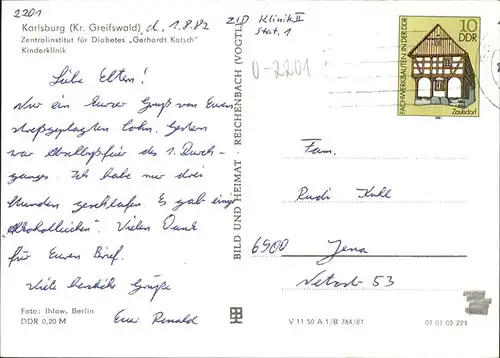 2201
Karlsburg (Kr. Greifswald) d. 1.8.82
Zentralinstitut für Diabetes „Gerhardt Katsch"
Kinderklinik
ZID Klinik II
Stat. 1
0-2201
Liebe Eltern!
Nur ein kurzer Gruß von Eurem
streßgeplagten Sohn. Gestern
war Abschlußfeier des 1. Durch-
gangs. Ich habe nur drei
Stunden geschlafen. Es gab einige
„Alkoholleichen". Vielen Dank
für Euren Brief.
Viele herzliche Grüße
Euer Renald
Foto: Ihlow, Berlin
DDR 0,20 M
BILD UND HEIMAT · REICHENBACH (VOGTL)
10
DDR
FACHWERKBAUTEN IN DER DDR
Zaulsdorf
1981
Fam.
Rudi
6900 Jena
53
V 11 50 A 1/B 764/81 01 01 05 224